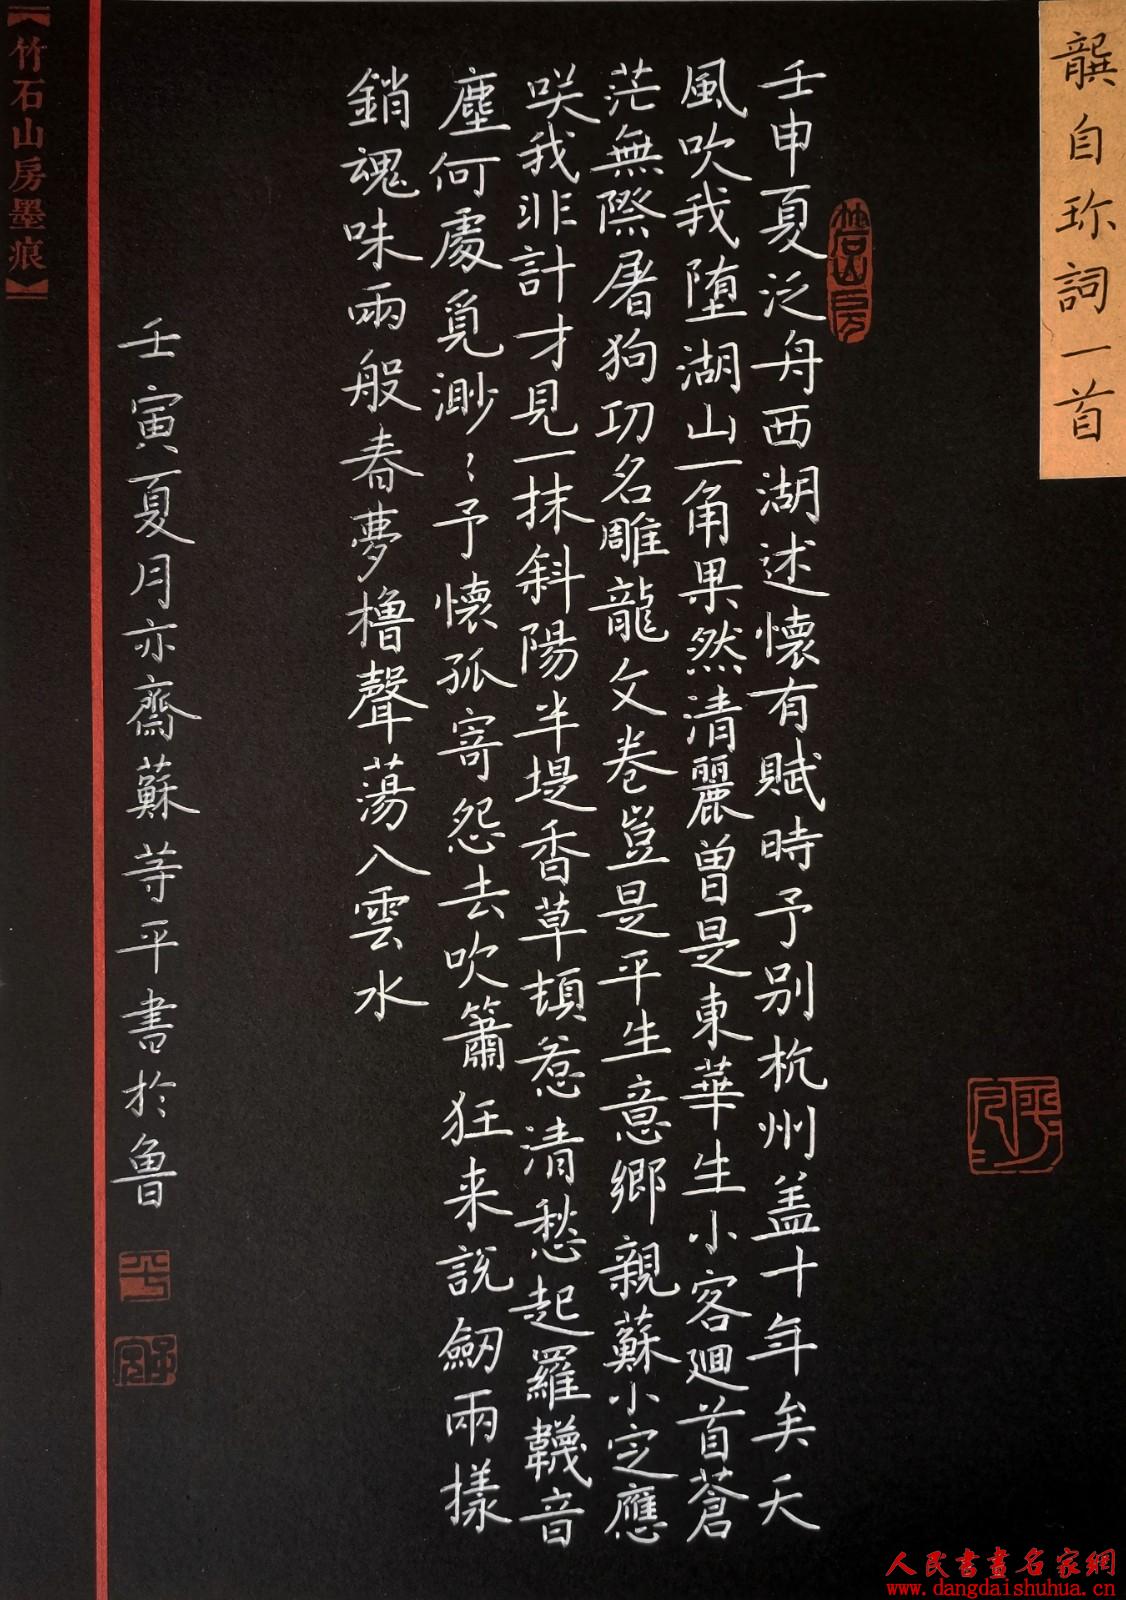 龔自珎詞一首
壬申夏泛舟西湖述懷有賦時予别杭州盖十年矣天
風吹我堕湖山一角果然清麗曾是東華生小客廻首蒼
茫無際屠狗功名雕龍文卷豈是平生意鄉親蘇小定應
咲我非計才見一抹斜陽半堤香草頓惹清愁起羅韈音
塵何處覓渺〻予懷孤寄怨去吹簫狂来說劒兩樣
銷魂味兩般春夢櫓聲蕩入雲水
壬寅夏月亦齋蘇等平書於魯
【竹石山房墨痕】
人民書畫名家網
www.dangdaishuhua.cn